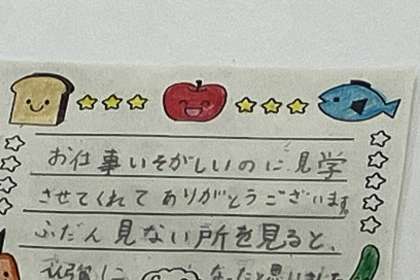 お仕事いそがしいのに、見学
させてくれてありがとうございます。
ふだん見ない所を見ると、
なったと思いました